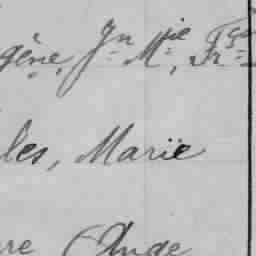 gène, Jn Mie, Frçois
les, Marie
re Ange